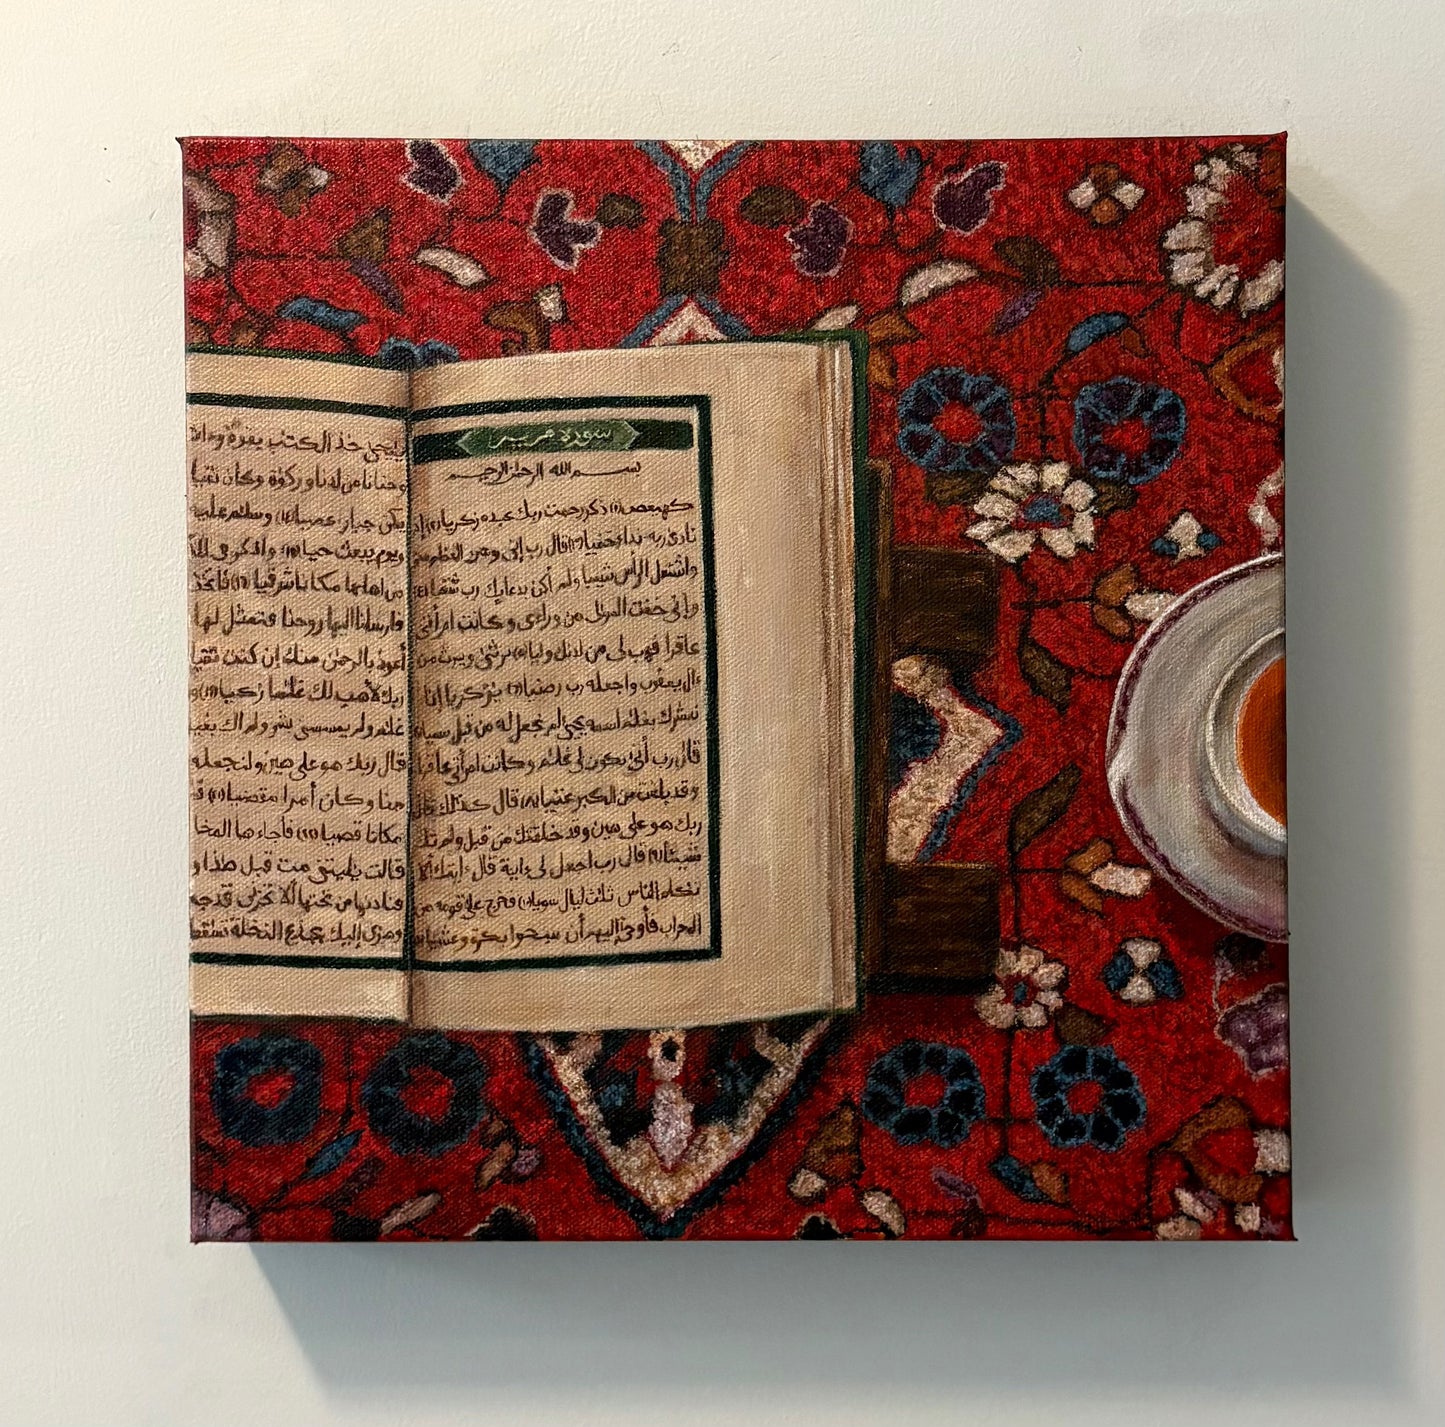 سورة مريم
بسم الله الرحمن الرحيم
كهيعص (١) ذكر رحمت ربك عبده زكريا (٢) إذ
نادى ربه نداء خفيا (٣) قال رب إني وهن العظم من
واشتعل الرأس شيبا ولم أكن بدعايك رب شقيا (٤)
وإني خفت المولى من وراءى وكانت امرأتي
عاقرا فهب لى من لدنك وليا (٥) يرثنى ويرث من
ءال يعقوب واجعله رب رضيا (٦) يزكريا إنا
نبشرك بغلم اسمه يحيى لم نجعل له من قبل سميا (٧)
قال رب أنى يكون لى غلم وكانت امرأتي عاقرا
وقد بلغت من الكبر عتيا (٨) قال كذلك قال
ربك هو على هين وقد خلقتك من قبل ولم تك
شيئا (٩) قال رب اجعل لى ءاية قال ءايتك ألا
تكلم الناس ثلث ليال سويا (١٠) فخرج على قومه من
المحراب فأوحى إليهم أن سبحوا بكرة وعشيا (١١)
ييحيى خذ الكتب بقوة وءات
وحنانا من لدنا وزكوة وكان تقيا
يكن جبارا عصيا (١٤) وسلم عليه
ويوم يبعث حيا (١٥) واذكر في الك
من اهلها مكانا شرقيا (١٦) فاتخذ
فارسلنا اليها روحنا فتمثل لها
أعوذ بالرحمن منك إن كنت تقيا
ربك لأهب لك غلما زكيا (١٩)
غلم ولم يمسسنى بشر ولم اك بغيا
قال ربك هو على هين ولنجعله
منا وكان أمرا مقضيا (٢١)
مكانا قصيا (٢٢) فأجاءها المخا
قالت يليتنى مت قبل هذا و
فنادىها من تحتها ألا تحزنى قد جع
وهزى إليك بجذع النخلة تسقط